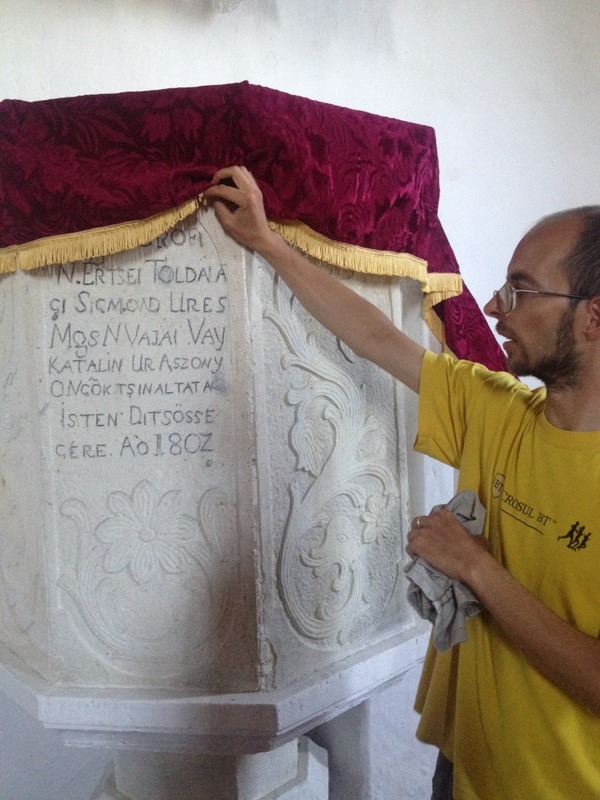 GROFI
N. ERTSEI TOLDALA
GI SIGMOND URES
MOS N VAJAI VAY
KATALIN UR ASZONY
ONGÕK TSINALTATA
ISTEN DITSÖSSE
GÉRE. AO 1802
BT CROSUL BT